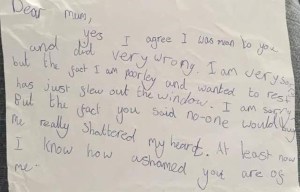 Dear mum,
yes I agree I was mean to you
and did very wrong. I am very sorry
but the fact I am poorley and wanted to rest
has just flew out the window. I am sorry
But the fact you said no-one would
me really shattered my heart. At least now
I know how ashamed you are of
me-